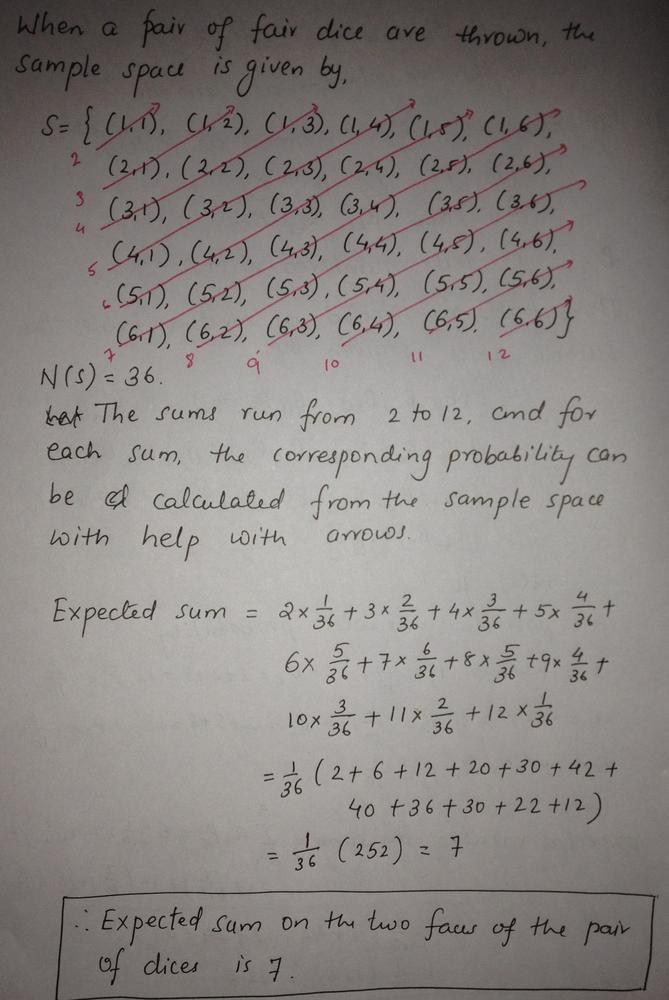 When a pair of fair dice are thrown, the
sample space is given by,
S= { (1,1), (1,2), (1,3), (1,4), (1,5), (1,6),
2 (2,1), (2,2), (2,3), (2,4), (2,5), (2,6),
3 (3,1), (3,2), (3,3), (3,4), (3,5), (3,6),
4
5 (4,1), (4,2), (4,3), (4,4), (4,5), (4,6),
6 (5,1), (5,2), (5,3), (5,4), (5,5), (5,6),
(6,1), (6,2), (6,3), (6,4), (6,5), (6,6) }
7 8 9 10 11 12
N(S) = 36.
The sums run from 2 to 12, and for
each sum, the corresponding probability can
be calculated from the sample space
with help with arrows.
Expected sum = 2 × 1/36 + 3 × 2/36 + 4 × 3/36 + 5 × 4/36 +
6 × 5/36 + 7 × 6/36 + 8 × 5/36 + 9 × 4/36 +
10 × 3/36 + 11 × 2/36 + 12 × 1/36
= 1/36 ( 2 + 6 + 12 + 20 + 30 + 42 +
40 + 36 + 30 + 22 + 12 )
= 1/36 (252) = 7
∴ Expected sum on the two faces of the pair
of dices is 7.